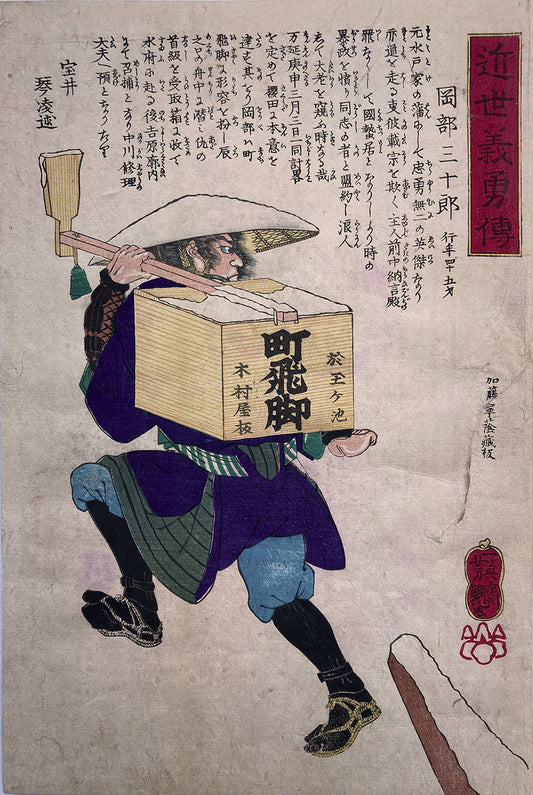 近世義勇傳
岡部三十郎
行年四十五才
元水戸家の藩にして忠勇無二の英傑なり
赤道を走る東坡載字を欺く主人前中納言殿
罪なくして國蟄居となりしより時の
暴政を憤り同志の者と盟約し浪人
して大老を窺ふ時なる哉
万延庚申三月三日同計畧
を定めて櫻田に本意を
達す其をり岡部ハ町
飛脚に形容を扮し辰
之口の舟中に潜し仇の
首級を受取箱に収て
水府に赴る後吉原廓内
にて召捕となり中川修理
大夫へ預となりたり
宝井
琴凌述
町飛脚
於玉ヶ池
木村屋板
加藤寧蔭蔵板
一英齋
芳艶画